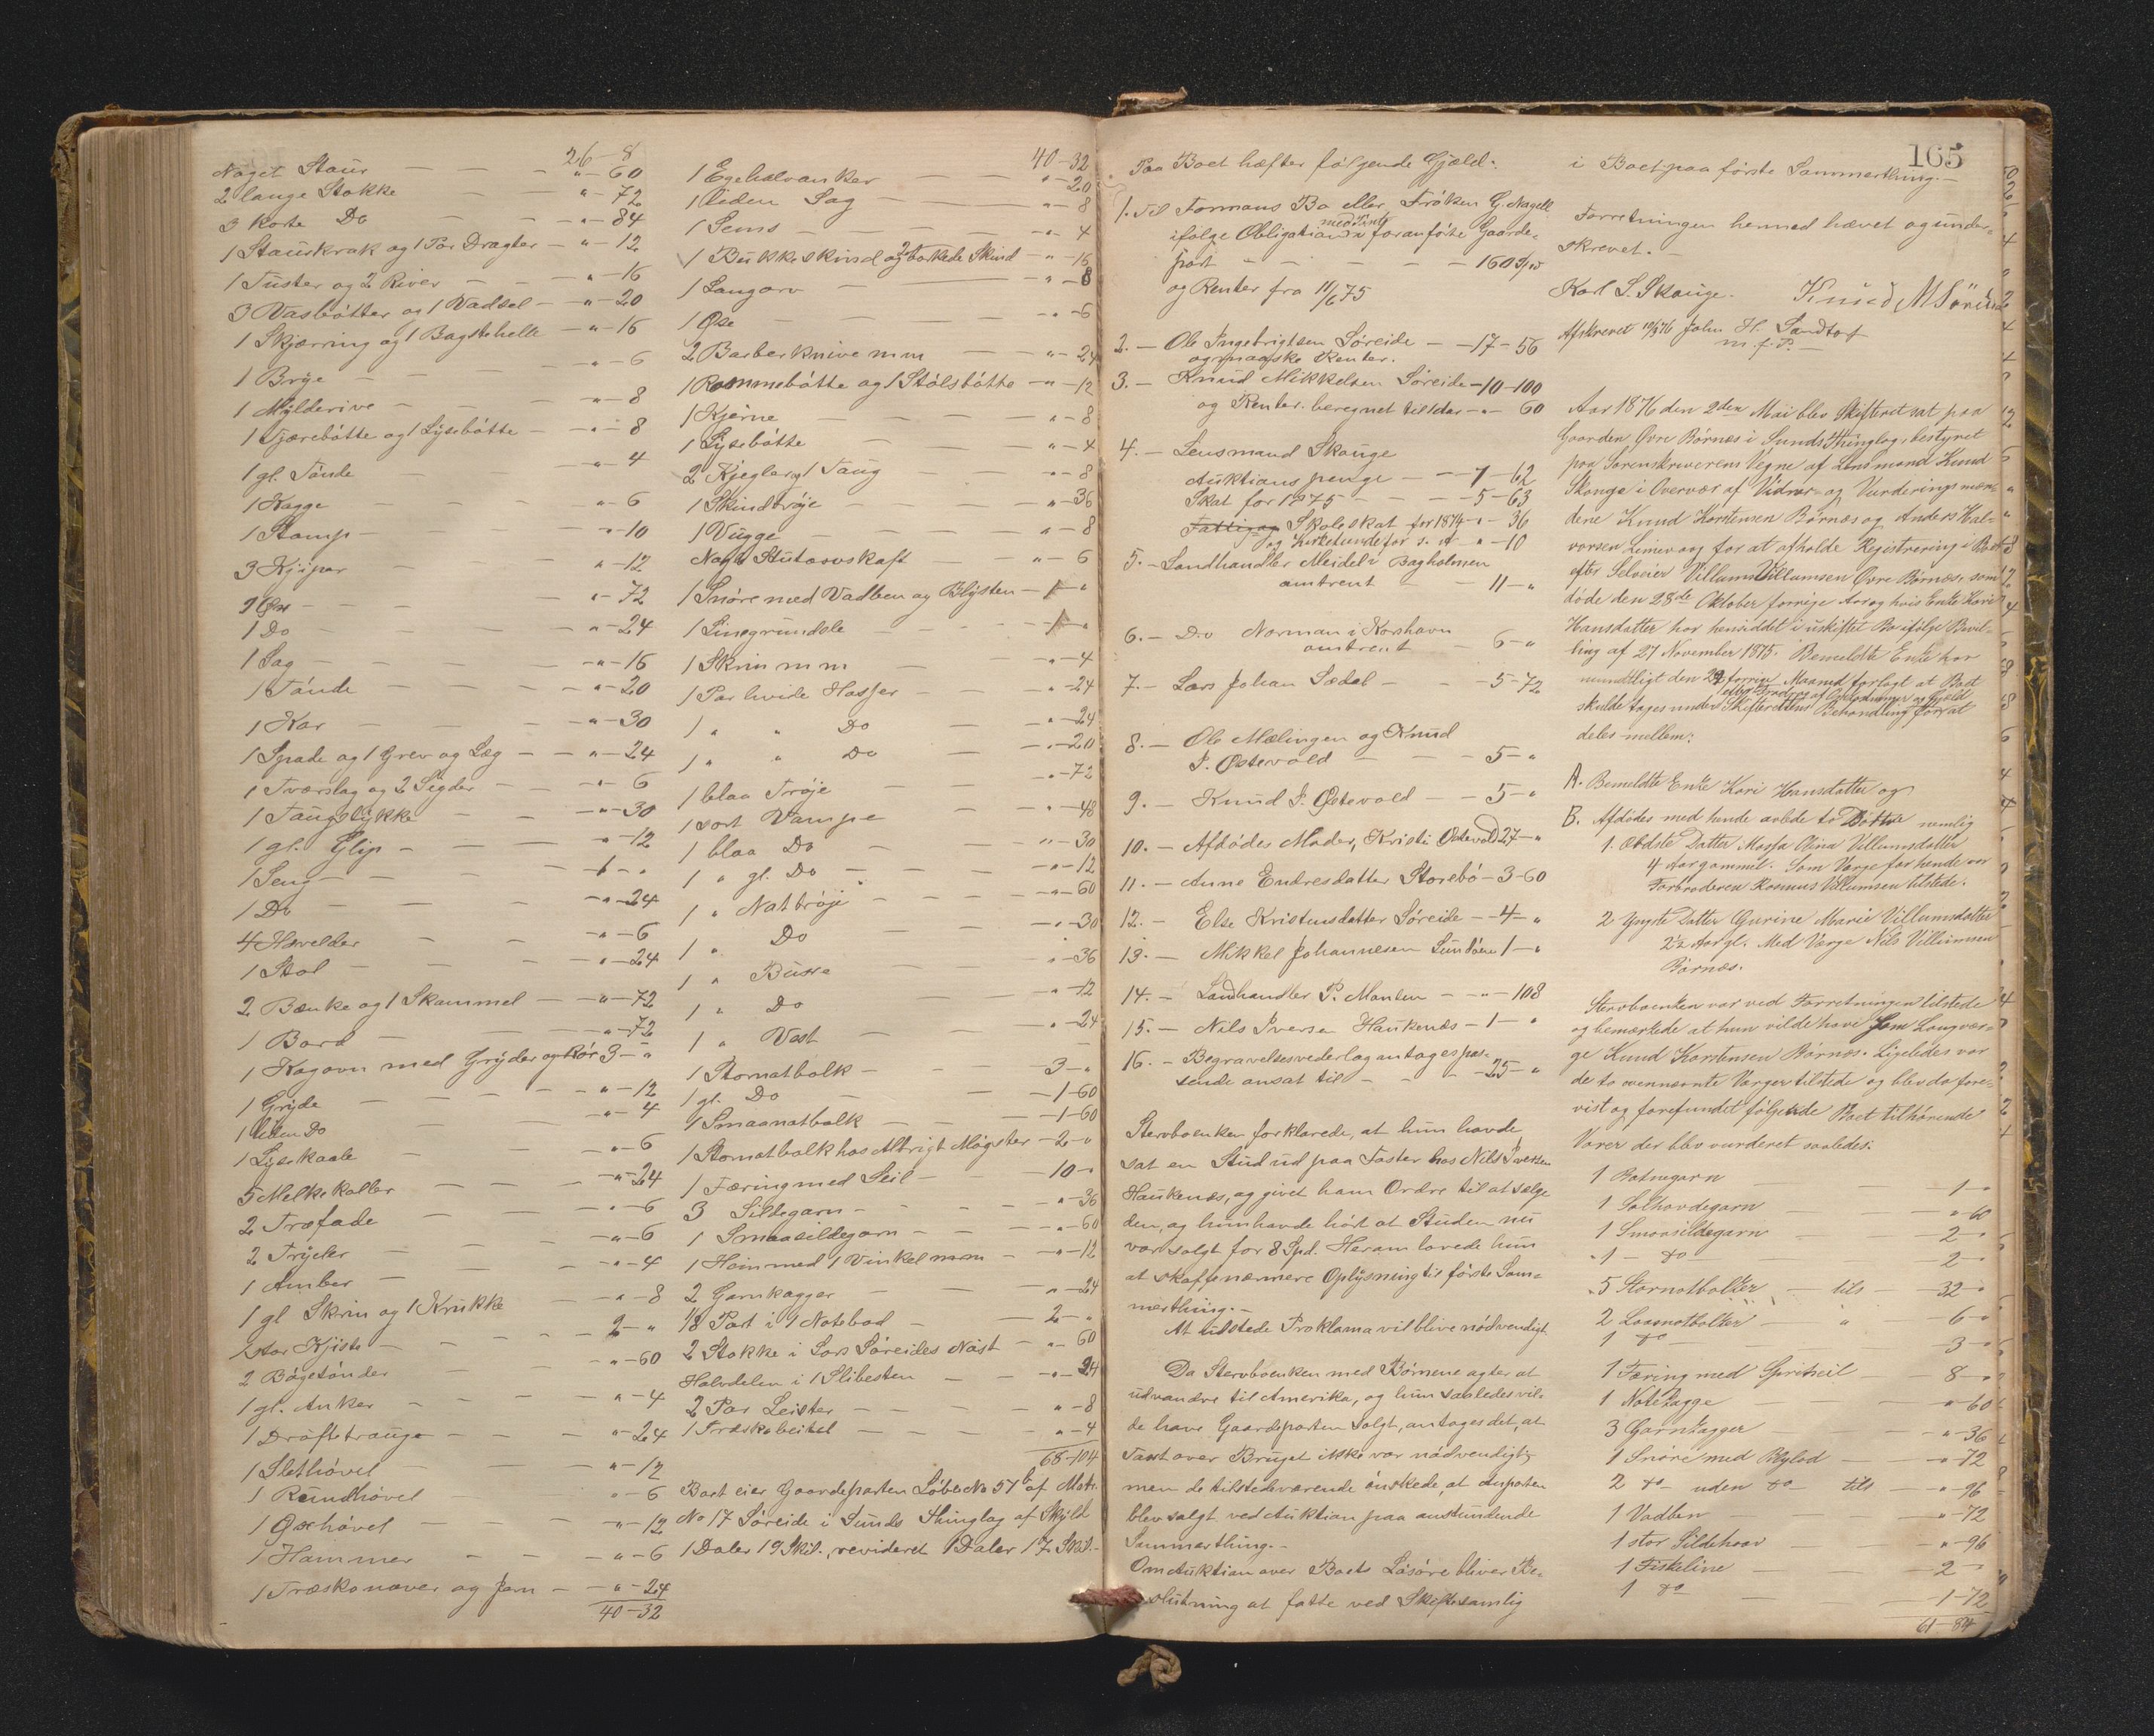 26-8
Noget Staur — — — „-60
2 lange Stokke — — „-72
3 korte Do — — „-84
1 Staurkrak og 1 Par Dragter — „-12
1 Tuster og 2 River — — „-16
3 Vasbøtter og 1 Vadsel — „-20
1 Skjærring og 1 Bagstehelle — „-16
1 Brye — — — „-6
1 Mylderive — — „-8
1 Tjærebøtte og 1 Lysebøtte — „-8
1 gl. Tønde — — „-4
1 Kagge — — — „-6
1 Stamp — — — „-10
3 Kjiper — — „-12
2 Øxe — — — „-72
1 Do — — — „-24
1 Sag — — — „-16
1 Tønde — — — „-20
1 Kar — — — „-30
1 Spade og 1 Grev og Læg — „-24
1 Tværslag og 2 Sigder — „-6
1 Taugstykke — — „-30
1 gl. Glip — — „-12
1 Seng — — — 1-„
1 Do — — — „-24
4 Hovelder — — „-6
1 Stol — — — „-24
2 Bænke og 1 Skammel — „-72
1 Bord — — — „-72
1 Kagovn med Gryder og Rør 3-„
1 Gryde — — — „-12
1 liden Do — — „-4
1 Lysekaale — — „-6
5 Melkekoller — — „-24
2 Træfade — — „-6
2 Tryler — — „-6
1 Amber — — „-4
1 gl Skrin og 1 Krukke — „-8
1 stor Kjiste — — 2-„
2 Bøgetønder — — „-60
1 gl. Anker — — „-4
1 Drøftetrauge — — „-24
1 Slethøvel — — „-12
1 Rundhøvel — — „-6
1 Øxhøvel — — „-12
1 Hammer — — „-6
1 Træskonaver og Jern — „-24
40-32
40-32
1 Egehalvanker — — „-20
1 liden Sag — — „-8
1 Sems — — — „-4
1 Bukkeskind og 2 barkede Skind — „-16
1 Langorv — — „-8
1 Øse — — — „-6
2 Barberknive m m — „-24
1 Rømmebøtte og 1 Stølsbøtte — „-12
1 Kjerne — — „-8
1 Lysebøtte — — „-4
2 Kjegler og 1 Taug — „-8
1 Skindtrøje — — „-36
1 Vugge — — „-8
Noget Stutorvskaft — „-6
1 Snøre med Vadben og Blysten — 1-„
1 Linegrundsle — — 1-„
1 Skrin m m — — „-4
1 Par hvide Hosser — „-24
1 „ „ Do — „-24
1 „ „ Do — „-20
1 blaa Trøje — — „-72
1 sort Vampe — — „-48
1 blaa Do — — „-30
1 „ gl. Do — — „-12
1 „ Nattrøje — — „-60
1 „ Do — — „-30
1 „ Buxe — — „-36
1 „ Do — — „-12
1 „ Vest — — „-24
1 Stornotbolk — — 3-„
1 gl. Do — — 1-60
1 Smaanotbolk — — 1-60
1 Stornotbolk hos Albrigt Møgster — 2-„
1 Færing med Seil — 10-„
3 Sildegarn — — „-36
1 Smaasildegarn — — „-60
1 Hein med 1 Vinkel m m — „-12
2 Garnkagger — — „-24
1/8 Part i 1 Notebod — 2-„
2 Stokke i Lars Søreides Nøst — „-60
Halvdelen i 1 Slibesten — „-24
2 Par Leister — — „-8
1 Træskobeitel — — „-4
68-104
Boet eier Gaardsparten Løbe No 57b af Matr.
No 17 Søreide i Sunds Thinglag af Skyld
1 Daler 19 Skil., revideret 1 Daler 17 Skil.
165
Paa Boet hæfter følgende Gjæld:
1. Til Formans Bo eller Frøken G. Nagell
ifølge Obligation med Pant i foranførte Gaards-
part — — — 160 Spd
og Renter fra 11/6 75
2. — Ole Ingebrigtsen Søreide — 17-56
og maaske Renter.
3. — Knud Mikkelsen Søreide — 10-100
og Renter beregnet til idar — „-60
4. — Lensmand Skauge
Auktionspenge — 7-62
Skat for 1875 — — 5-63
Fattig og Skoleskat for 1874 — „-36
og Kirketiende for s. A „-10
5. — Landhandler Meidel i Bagholmen
omtrent — 11-„
6. — Do Norman i Korshavn
omtrent — 6-„
7. — Lars Johan Sædal — 5-72
8. — Ole Mælingen og Knud
P. Østevold — — 5-„
9. — Knud P. Østevold — 5-„
10. — Afdødes Moder, Kristi Østevold 27-„
11. — Anne Endresdatter Storebø — 3-60
12. — Else Kristensdatter Søreide — 4-„
13. — Mikkel Johannesen Sundøen 1-„
14. — Landhandler P. Monsen — „-108
15. — Nils Iversen Haukenæs — 1-„
16. — Begravelsesvederlag antages pas-
sende ansat til — — 25-„
Stervboenken forklarede, at hun havde
sat en Stud ud paa Foster hos Nils Iversen
Haukenæs, og givet ham Ordre til at sælge
den, og hun havde hørt at Studen nu
var solgt for 8 Spd. Herom lovede hun
at skaffe nærmere Oplysning til første Som-
merthing. —
At udstede Proklama vil blive nødvendigt.
Da Stervboenken med Børnene agter at
udvandre til Amerika, og hun saaledes vil-
de have Gaardsparten solgt, antages det, at
Taxt over Bruget ikke var nødvendigt;
men de tilstedeværende ønskede, at Jnparten
blev solgt ved Auktion paa anstundende
Sommerthing. —
Om Auktion over Boets Løsøre bliver Be-
slutning at fatte ved Skiftesamling
i Boet paa første Sommerthing. —
Forretningen hermed hævet og under-
skrevet. —
Karl S. Skauge. Knud M Søreide
Afskrevet 10/5 76 John H. Sandtorf
m. f. P.
Aar 1876 den 2den Mai blev Skifteret sat paa
Gaarden Øvre Børnes i Sunds Thinglag, bestyret
paa Sorenskriverens Vegne af Lensmand Knud
Skauge i Overvær af Vidner- og Vurderingsmæn-
dene Knud Karstensen Børnæs og Anders Hal-
vorsen Leinevaag for at afholde Registrering i Boet
efter Selveier Villum Villumsen Øvre Børnæs, som
døde den 28de Oktober forrige Aar og hvis Enke Kari
Hansdatter har hensiddet i uskiftet Bo ifølge Bevil-
ling af 27 November 1875. Bemeldte Enke har
mundtligt den 29 forrige Maaned forlagt at Boet
efter Fradrag af Omkostninger og Gjæld
skulde tages under Skifterettens Behandling for at
deles mellem:
A. Bemeldte Enke Kari Hansdatter og
B. Afdødes med hende avlede to Døttre nemlig
1. Ældste Datter Marta Oina Villumsdatter
4 Aar gammel. Som Værge for hende var
Farbroderen Rasmus Villumsen tilstede.
2 Yngste Datter Gurine Marie Villumsdatter
2½ Aar gl. Med Værge Nils Villumsen
Børnæs.
Stervboenken var ved Forretningen tilstede
og bemærkede at hun vilde have som Laugvær-
ge Knud Karstensen Børnæs. Ligeledes var
de to ovennævnte Værger tilstede og blev da fore-
vist og forefundet følgende Boet tilhørende
Varer der blev vurderet saaledes:
1 Botnegarn — — 1-„
1 Solhovdegarn — — „-60
1 Smaasildegarn — — 2-„
1 — do — — 2-„
5 Stornotbolker — tils — 32-„
2 Laxenotbolker — „ — 6-„
1 do — — 3-„
1 Færing med Spritseil — 8-„
1 Notekagge — — „-60
3 Garnkagger — — „-36
1 Snøre med Blylod — „-72
2 do uden do tils — „-96
1 Vadben — — „-72
1 stor Sildehaav — — „-96
1 Fiskeline — — 2-„
1 do — — 1-72
61-84